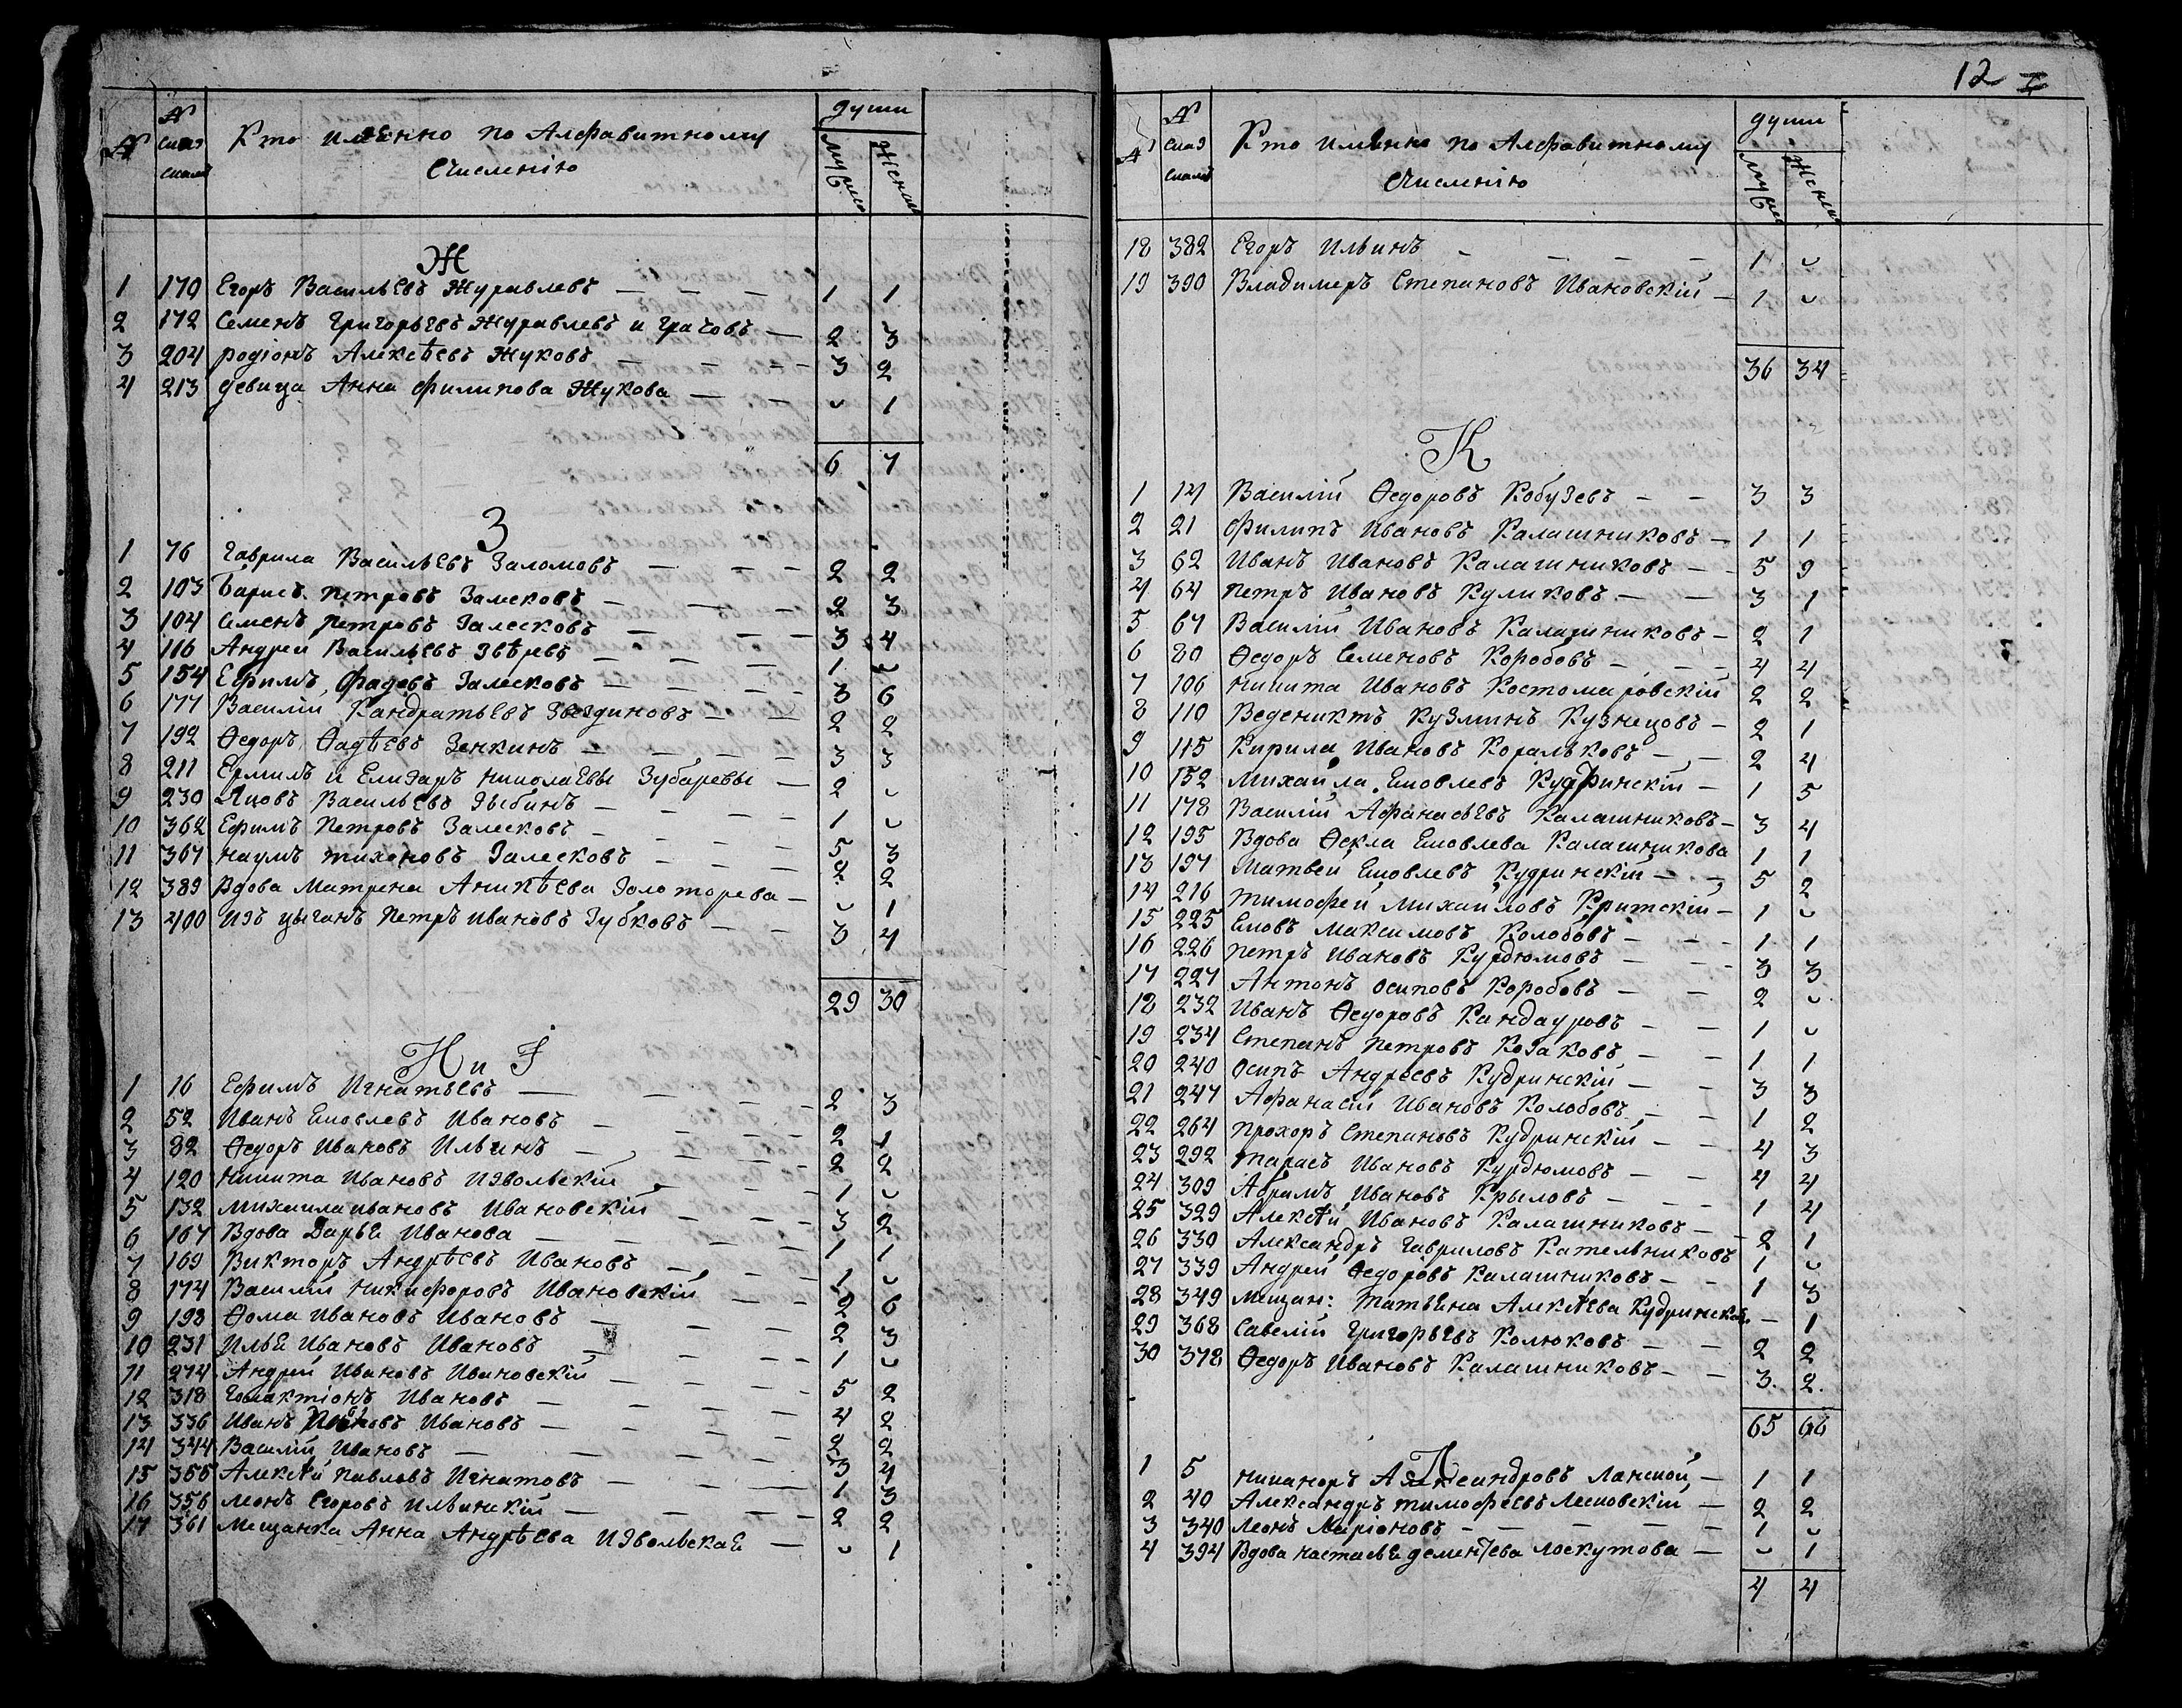 № № сказ скамъ Кто имянно по Алфавитному души
Счисленію муж женс
Ж
1 170 Егоръ Васильевъ Журавлевъ — — — 1 1
2 172 Семенъ Григорьевъ Журавлевъ и Грачовъ — 2 3
3 204 родіонъ Алексѣевъ Жуковъ — — — 3 2
4 213 девица Анна филипова Жукова — — 〃 1
6 7
З
1 76 Гаврила Васильевъ Заломовъ — — — 2 2
2 103 Барисъ Петровъ Залесковъ — — — 2 3
3 104 Семенъ Петровъ Залесковъ — — — 3 4
4 116 Андреи Васильевъ Звѣревъ — — — 1 〃
5 154 Ефимъ Фадѣевъ Залесковъ — — — 3 6
6 177 Василіи Кандратьевъ Звездиновъ — — 2 2
7 192 Ѳедоръ Ѳадѣевъ Зенкинъ — — — 3 3
8 211 Ермилъ и Елизаръ николаевы Зубаревы — 2 〃
9 230 Яковъ Васильевъ Зыбинъ — — — 1 〃
10 362 Ефимъ Петровъ Залесковъ — — — 5 3
11 367 наумъ тихоновъ Залесковъ — — — 2 2
12 389 Вдова Матрена Аникѣева Золоторева — 〃 1
13 400 Изъ цыганъ Петръ Ивановъ Зубковъ — — 3 4
29 30
И и І
1 16 Ефимъ Игнатьевъ — — — 2 3
2 52 Иванъ Ековлевъ Ивановъ — — — 2 1
3 82 Ѳедоръ Ивановъ Ильинъ — — — 2 2
4 120 никита Ивановъ Извольскій — — — 1 〃
5 132 Михаила ивановъ Ивановскій — — — 3 2
6 167 Вдова Дарьє Иванова — — — 1 1
7 169 Викторъ Андрѣевъ Ивановъ — — — 1 〃
8 174 Василіи никифоровъ Ивановскій — — 2 6
9 198 Ѳома Ивановъ Ивановъ — — — 2 3
10 231 Илье Ивановъ Ивановъ — — — 1 〃
11 274 Андрей Ивановъ Ивановскій — — — 5 2
12 318 Голактіонъ Ивановъ — — — 4 2
13 336 Иванъ Ивановъ — — — 2 2
14 344 Василіи Ивановъ — — — 3 4
15 355 Алексѣй павловъ Игнатовъ — — — 1 3
16 356 леонъ Егоровъ Ильинскій — — — 2 2
17 361 Мещанка Анна Андрѣева Извольскаѣ — 〃 1
12
№ № сказ скамъ Кто имянно по Алфавитному души
Счисленію муж женс
18 382 Егоръ Ильинъ — — — 1 〃
19 390 Владимеръ Степановъ Ивановскій — 1 〃
36 34
К
1 14 Василій Ѳедоровъ Кобузевъ — — 3 3
2 21 Филипъ Ивановъ Калашниковъ — 1 1
3 62 Иванъ Ивановъ Калашниковъ — — 5 9
4 64 Петръ Ивановъ Куликовъ — — 3 1
5 67 Василій Ивановъ Калашниковъ — 2 1
6 80 Ѳедоръ Семеновъ Коробовъ — — — 4 4
7 106 никита Ивановъ Костомаровскій 2 2
8 110 Веденикτъ Кузминъ Кузнецовъ — 2 1
9 115 Кирила Ивановъ Коральковъ — — 2 4
10 152 Михайла Ековлевъ Кудринскій — 1 5
11 178 Василій Афанасьевъ Калашниковъ — 3 4
12 195 Вдова Ѳекла Ековлева Калашникова 1 1
13 197 Матвеи Ековлевъ Кудринскій — — 5 2
14 216 Тимофей Михайловъ Критскій — 1 〃
15 225 Ековъ Максимовъ Колобовъ — — — 1 1
16 226 Петръ Ивановъ Курдюмовъ — — — 3 3
17 227 Антонъ осиповъ Коробовъ — — 2 〃
18 232 Иванъ Ѳедоровъ Кандауровъ — — 1 〃
19 234 Степанъ Петровъ Козаковъ — — 1 1
20 240 Осипъ Андреевъ Кудринскій — — 3 3
21 247 Афанасій Ивановъ Колобовъ — — 1 2
22 264 Прохоръ Степановъ Кудринскій — — 4 3
23 292 тарасъ Ивановъ Курдюмовъ — — 4 4
24 309 Абрамъ Ивановъ Крыловъ — — — 1 4
25 329 Алексѣй Ивановъ Калашниковъ — — 2 1
26 330 Александръ Гавриловъ Кательниковъ 1 〃
27 339 Андрей Ѳедоровъ Калашниковъ — — 1 3
28 349 мещан: татьяна Алексѣева Кудринская — 1
29 368 Савелій Григорьевъ Колюковъ — — 2 2
30 378 Ѳедоръ Ивановъ Калашниковъ — — 3 2
65 66
Л
1 5 никаноръ Александровъ Ланской — 1 1
2 40 Александръ тимофеевъ Лесковскій — 2 2
3 340 Леонъ Ларіоновъ — — — 1 〃
4 394 Вдова настасье дементева Лоскутова — 〃 1
4 4